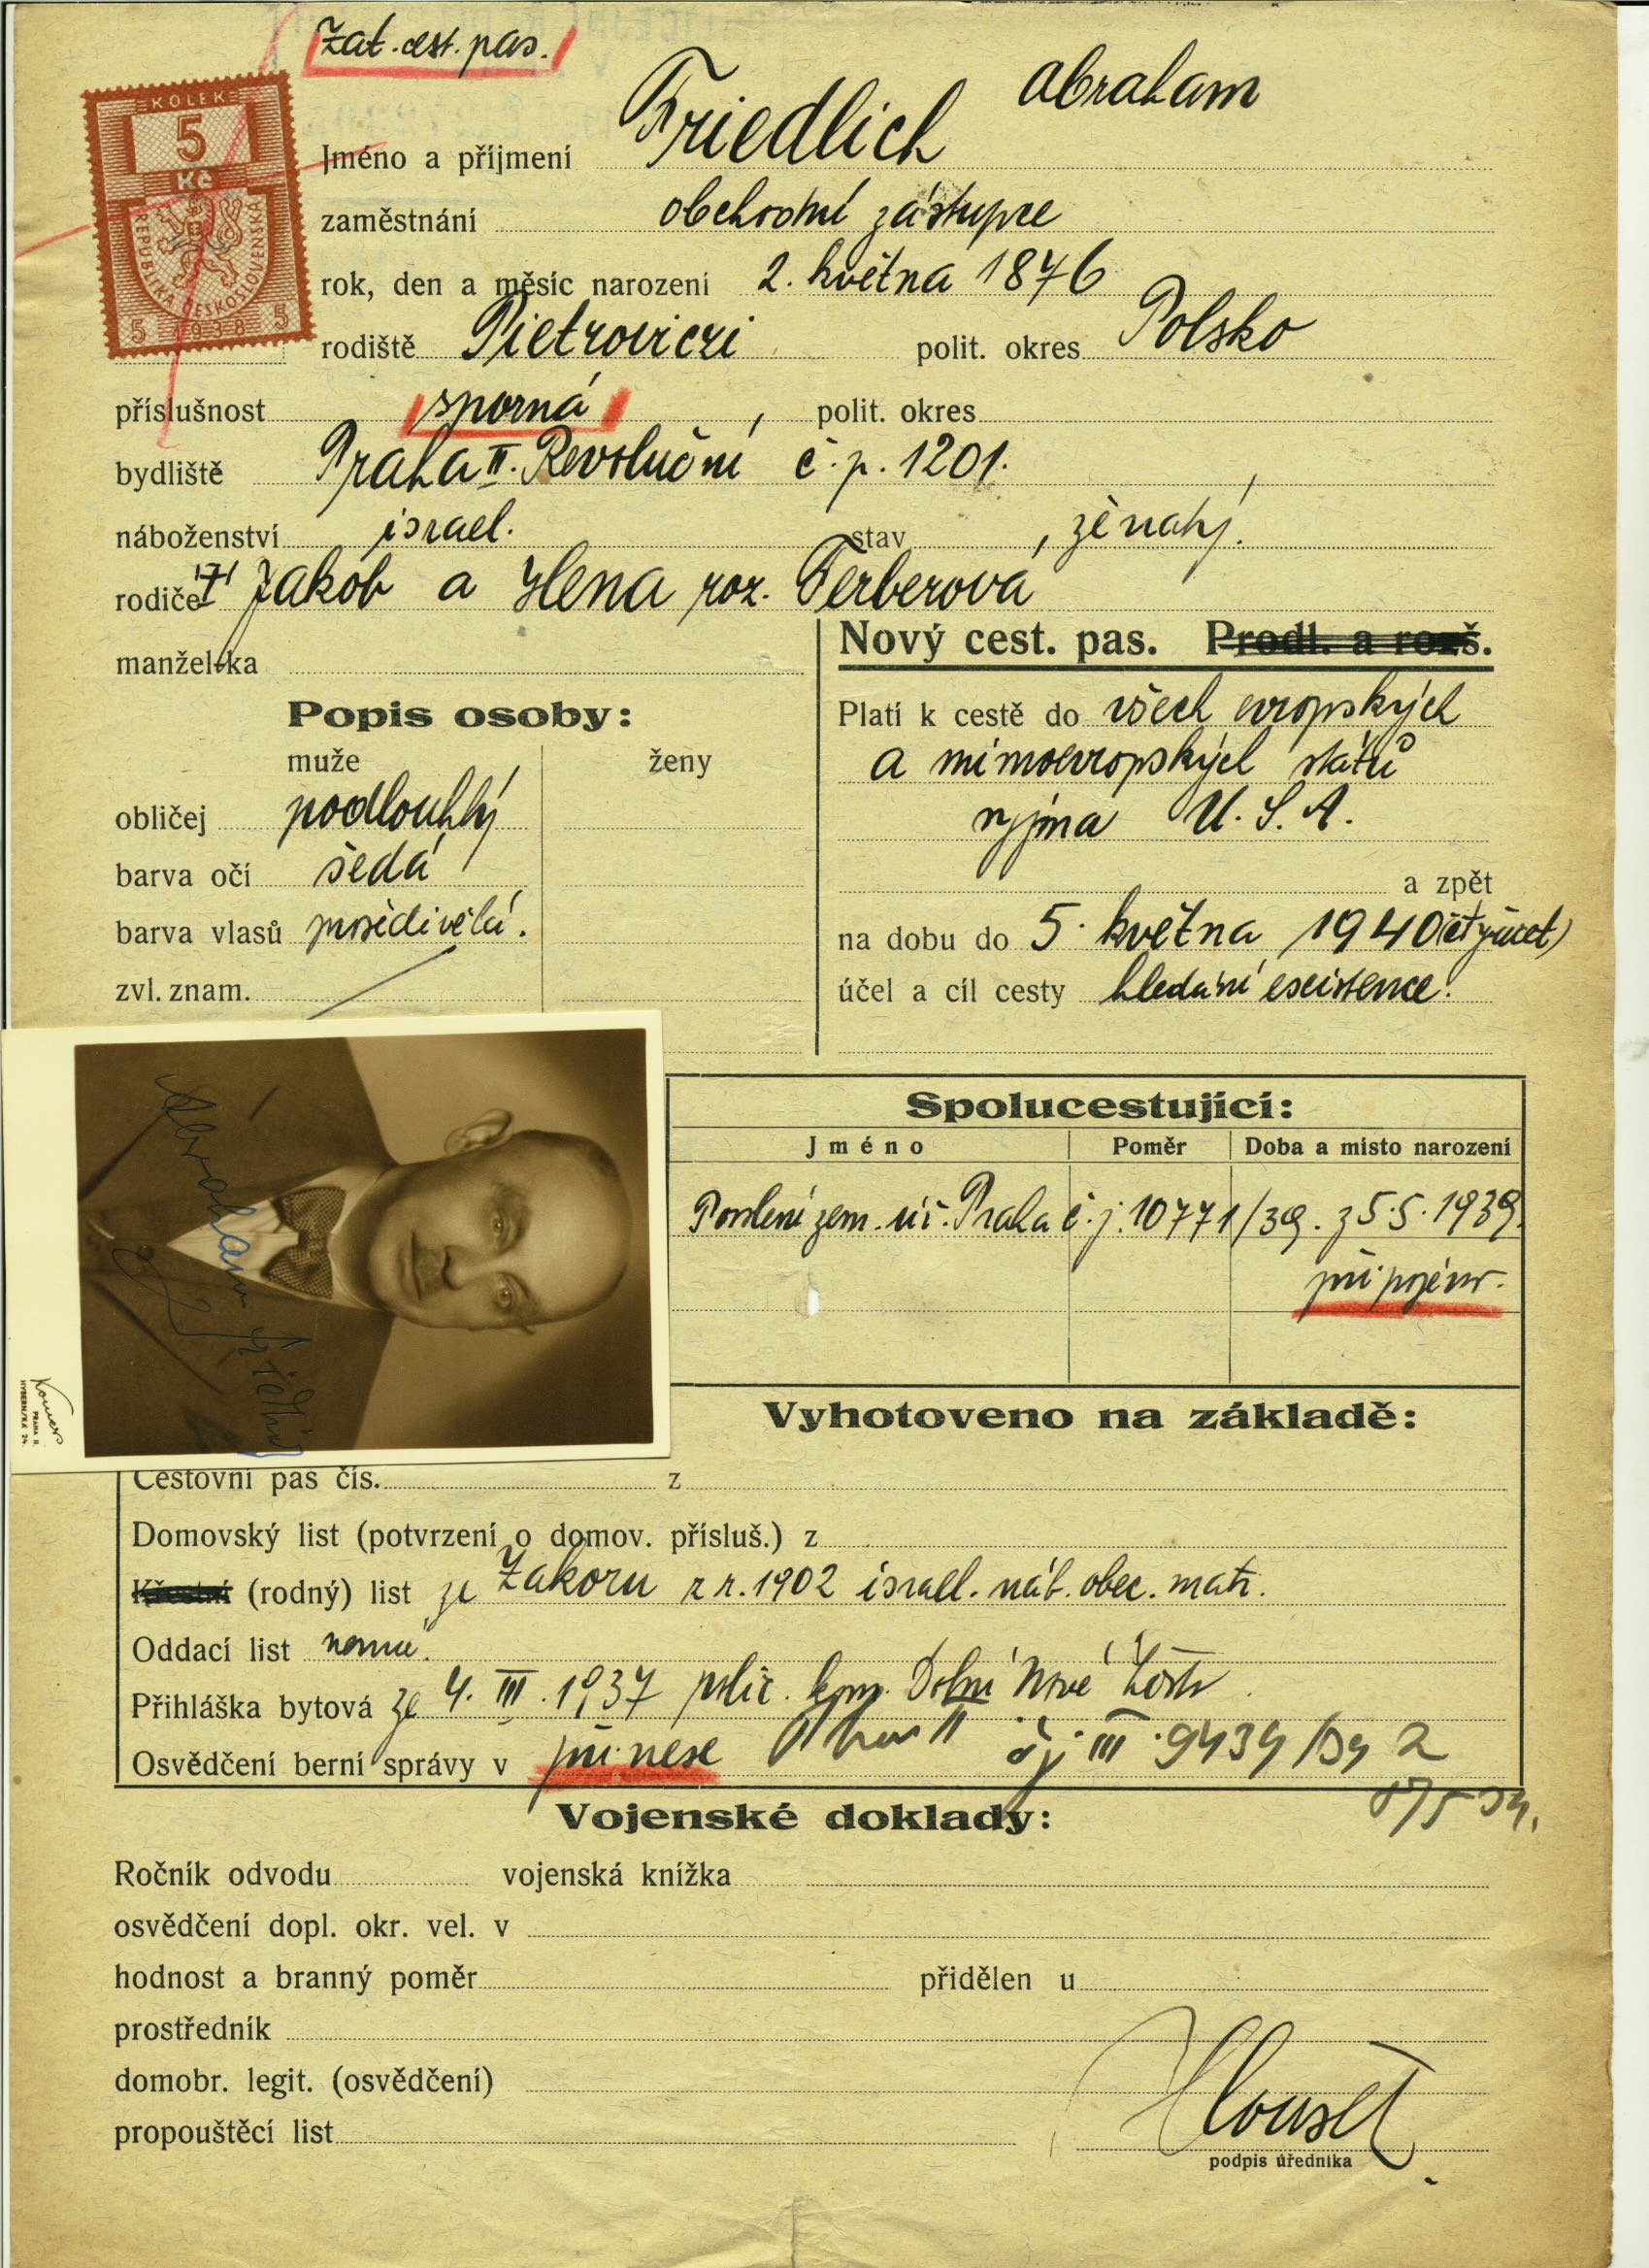 Zat. cest. pas.
KOLEK
5
Kč
REPUBLIKA ČESKOSLOVENSKÁ
5 1938 5
Abraham
Jméno a příjmení Friedlich
zaměstnání obchodní zástupce
rok, den a měsíc narození 2. května 1876
rodiště Pietroviczi polit. okres Polsko
příslušnost sporná, polit. okres
bydliště Praha II. Revoluční č. p. 1201.
náboženství israel. stav, ženatý.
rodiče Jakob a Hena roz. Ferberová
manžel-ka
Nový cest. pas. Prodl. a rozš.
Popis osoby:
muže ženy
obličej podlouhlý
barva očí šedá
barva vlasů prošedivělá.
zvl. znam.
Platí k cestě do všech evropských
a mimoevropských států
vyjma U. S. A.
a zpět
na dobu do 5. května 1940 (čtyřicet)
účel a cíl cesty hledání existence.
Abraham Friedlich
PRAHA II.
HYBERNSKÁ 24
Spolucestující:
Jméno Poměr Doba a místo narození
Povolení zem. úř. Praha č. j. 10771/39. z 5.5. 1939.
připojeno.
Vyhotoveno na základě:
Cestovní pas čís. z
Domovský list (potvrzení o domov. přísluš.) z
Křestní (rodný) list ze Zakoru z r. 1902 israel. náb. obec. matr.
Oddací list nemá.
Přihláška bytová ze 4. III. 1937 polic. kom. Dolní Nové Město.
Osvědčení berní správy v přinese II čj III 9439/39 2
Vojenské doklady:
Ročník odvodu vojenská knížka
osvědčení dopl. okr. vel. v
hodnost a branný poměr přidělen u
prostředník
domobr. legit. (osvědčení)
propouštěcí list
podpis úředníka